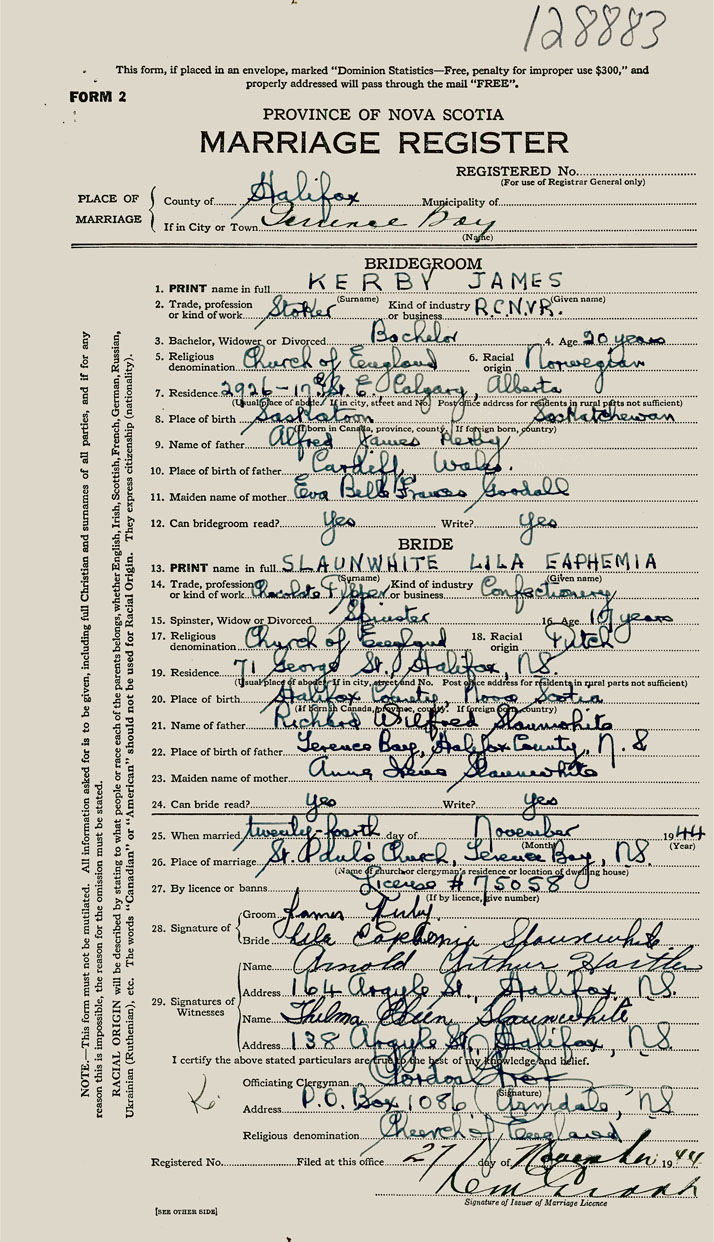 128883
This form, if placed in an envelope, marked "Dominion Statistics—Free, penalty for improper use $300," and
properly addressed will pass through the mail "FREE".
FORM 2
PROVINCE OF NOVA SCOTIA
MARRIAGE REGISTER
REGISTERED No.
(For use of Registrar General only)
PLACE OF MARRIAGE
County of Halifax Municipality of
If in City or Town Terrence Bay
(Name)
BRIDEGROOM
1. PRINT name in full KERBY JAMES
(Surname) (Given name)
2. Trade, profession or kind of work Stoker Kind of industry or business R.C.N.V.R.
3. Bachelor, Widower or Divorced Bachelor 4. Age 20 years
5. Religious denomination Church of England 6. Racial origin Norwegian
7. Residence 2926-17 St. E., Calgary, Alberta
(Usual place of abode. If in city, street and No. Post office address for residents in rural parts not sufficient)
8. Place of birth Saskatoon Saskatchewan
(If born in Canada, province, county. If foreign born, country)
9. Name of father Alfred James Kerby
10. Place of birth of father Cardiff, Wales.
11. Maiden name of mother Eva Bell Frances Goodall
12. Can bridegroom read? Yes Write? Yes
BRIDE
13. PRINT name in full SLAUNWHITE LILA EAPHEMIA
(Surname) (Given name)
14. Trade, profession or kind of work Chocolate Dipper Kind of industry or business Confectionery
15. Spinster, Widow or Divorced Spinster 16. Age 19 years
17. Religious denomination Church of England 18. Racial origin Dutch
19. Residence 71 George St., Halifax, NS
(Usual place of abode. If in city, street and No. Post office address for residents in rural parts not sufficient)
20. Place of birth Halifax County, Nova Scotia
(If born in Canada, province, county. If foreign born, country)
21. Name of father Richard Wilfred Slaunwhite
22. Place of birth of father Terence Bay, Halifax County, N.S
23. Maiden name of mother Anna Irene Slaunwhite
24. Can bride read? Yes Write? Yes
25. When married twenty-fourth day of November 1944
(Month) (Year)
26. Place of marriage St. Paul's Church, Terence Bay, NS.
(Name of church or clergyman's residence or location of dwelling house)
27. By licence or banns License # 75058
(If by licence, give number)
28. Signature of
Groom James Kirby.
Bride Lila Eaphemia Slaunwhite
29. Signatures of Witnesses
Name Arnold Arthur
Address 164 Argyle St., Halifax, NS.
Name Thelma Slaunwhite
Address 138 Argyle St., Halifax, NS.
I certify the above stated particulars are true to the best of my knowledge and belief.
Officiating Clergyman Gordon
(Signature)
Address P.O. Box 1086 Armdale, NS
Religious denomination Church of England
Registered No. Filed at this office 27 day of November 1944
Signature of Issuer of Marriage Licence
[SEE OTHER SIDE]
NOTE.—This form must not be mutilated. All information asked for is to be given, including full Christian and surnames of all parties, and if for any
reason this is impossible, the reason for the omission must be stated.
RACIAL ORIGIN will be described by stating to what people or race each of the parents belongs, whether English, Irish, Scottish, French, German, Russian,
Ukrainian (Ruthenian), etc. The words "Canadian" or "American" should not be used for Racial Origin. They express citizenship (nationality).